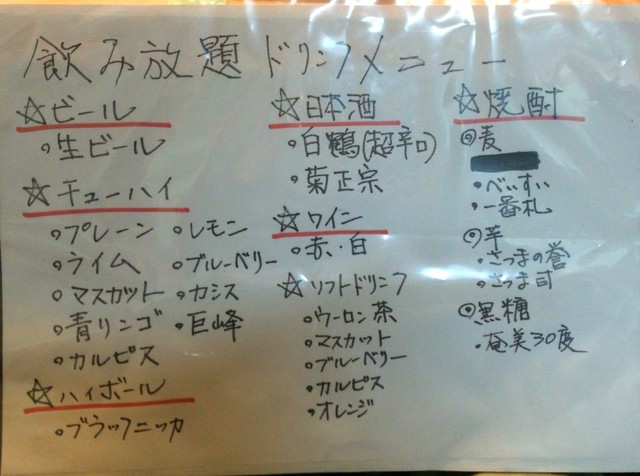 飲み放題 ドリンクメニュー
☆ビール
○生ビール
☆チューハイ
○プレーン ○レモン
○ライム ○ブルーベリー
○マスカット ○カシス
○青リンゴ ○巨峰
○カルピス
☆ハイボール
○ブラックニッカ
☆日本酒
○白鶴(超辛口)
○菊正宗
☆ワイン
○赤・白
☆ソフトドリンク
○ウーロン茶
○マスカット
○ブルーベリー
○カルピス
○オレンジ
☆焼酎
◎麦
・べいすい
・一番札
◎芋
・さつまの誉
・さつま司
◎黒糖
・奄美30度